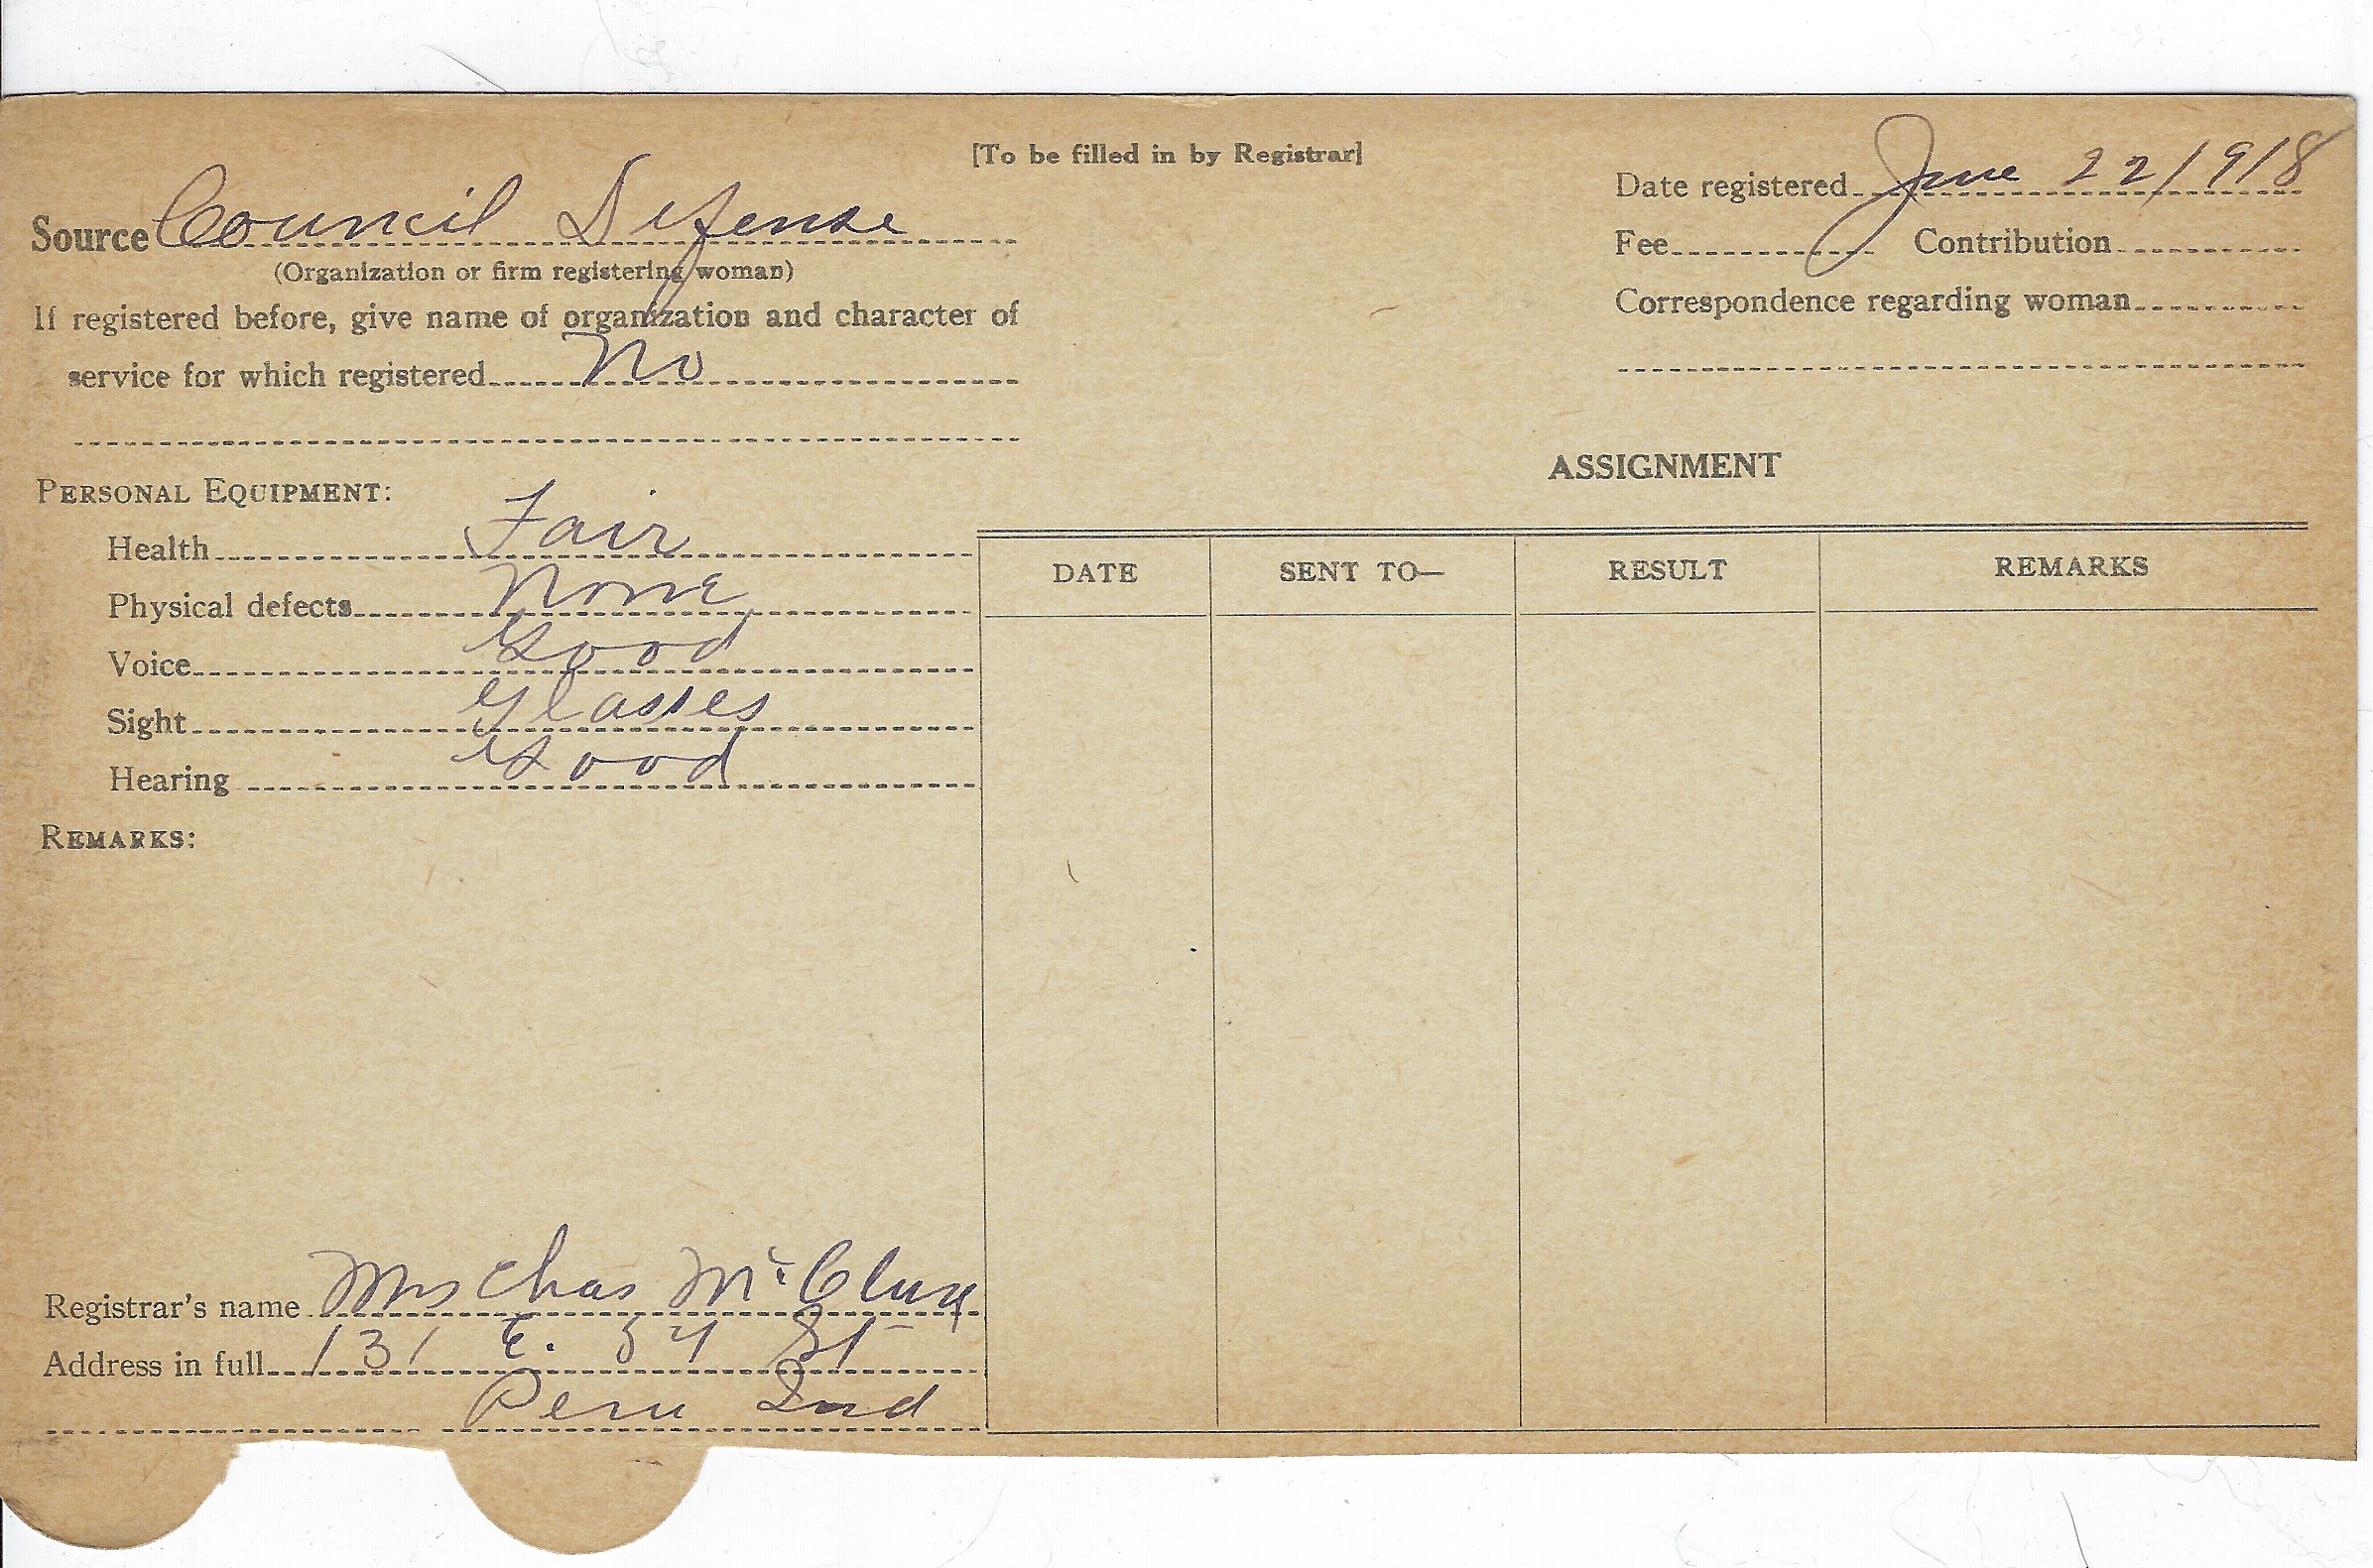 [To be filled in by Registrar]
Date registered June 22/918
Source Council Defense
Fee Contribution
(Organization or firm registering woman)
Correspondence regarding woman
If registered before, give name of organization and character of
service for which registered No
ASSIGNMENT
PERSONAL EQUIPMENT:
Health Fair
Physical defects None
Voice Good
Sight Glasses
Hearing Good
DATE SENT TO— RESULT REMARKS
REMARKS:
Registrar's name Mrs Chas
Address in full 131 E. St
Peru Ind